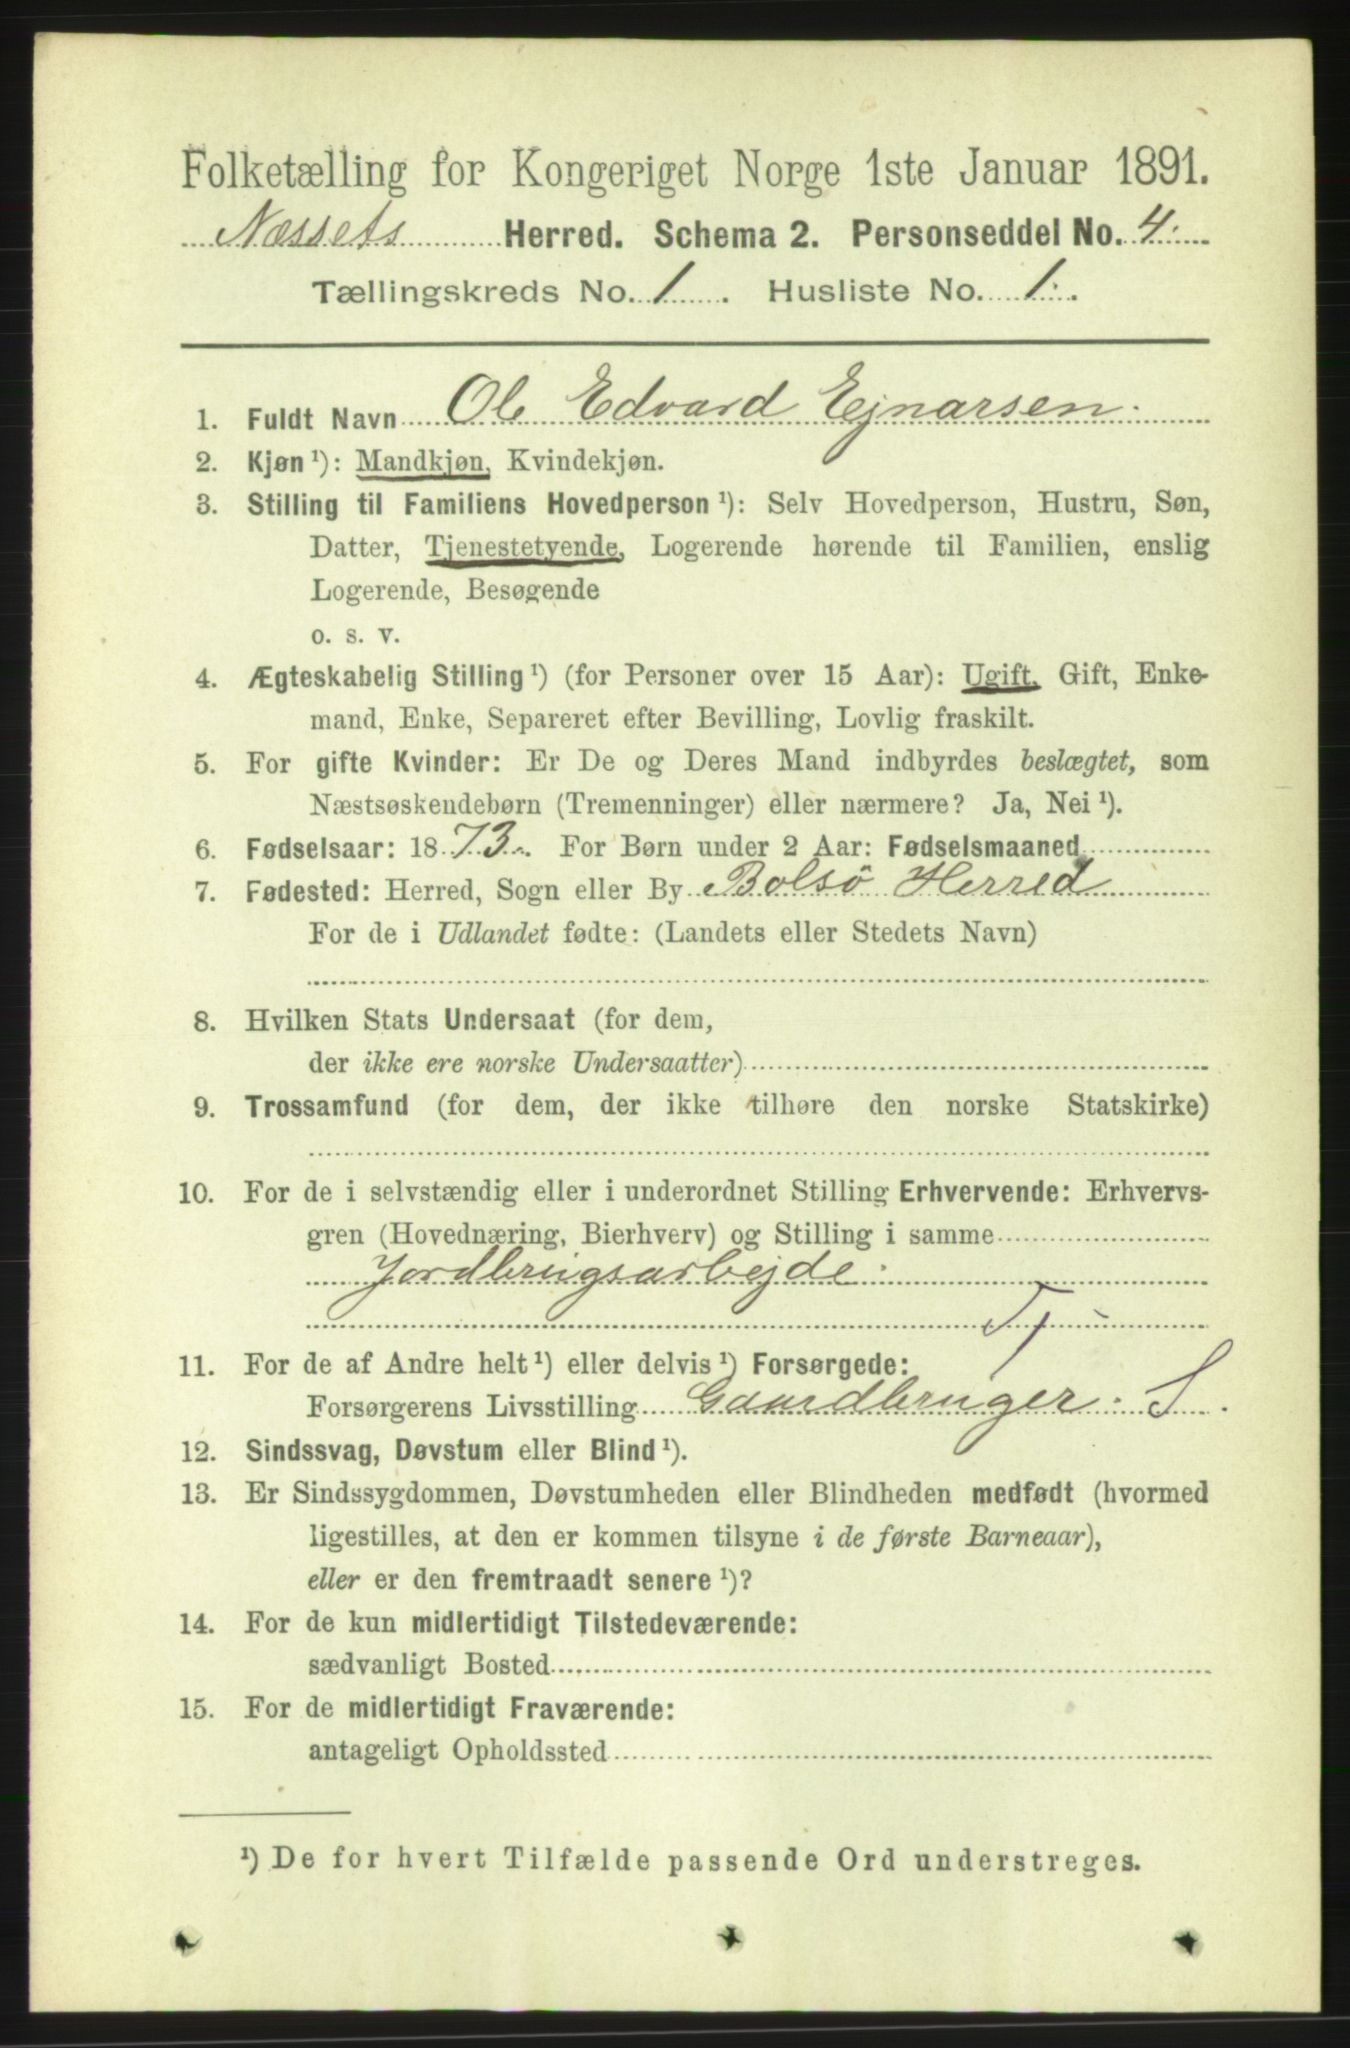 Folketælling for Kongeriget Norge 1ste Januar 1891.
Næssets Herred. Schema 2. Personseddel No. 4.
Tællingskreds No. 1. Husliste No. 1.
1. Fuldt Navn Ole Edvard Ejnarsen.
2. Kjøn ¹): Mandkjøn, Kvindekjøn.
3. Stilling til Familiens Hovedperson ¹): Selv Hovedperson, Hustru, Søn,
Datter, Tjenestetyende, Logerende hørende til Familien, enslig
Logerende, Besøgende
o. s. v.
4. Ægteskabelig Stilling ¹) (for Personer over 15 Aar): Ugift, Gift, Enke-
mand, Enke, Separeret efter Bevilling, Lovlig fraskilt.
5. For gifte Kvinder: Er De og Deres Mand indbyrdes beslægtet, som
Næstsøskendebørn (Tremenninger) eller nærmere? Ja, Nei ¹).
6. Fødselsaar: 1873. For Børn under 2 Aar: Fødselsmaaned
7. Fødested: Herred, Sogn eller By Bolsö Herred
For de i Udlandet fødte: (Landets eller Stedets Navn)
8. Hvilken Stats Undersaat (for dem,
der ikke ere norske Undersaatter)
9. Trossamfund (for dem, der ikke tilhøre den norske Statskirke)
10. For de i selvstændig eller i underordnet Stilling Erhvervende: Erhvervs-
gren (Hovednæring, Bierhverv) og Stilling i samme
Jordbrugsarbejde.
Tj
11. For de af Andre helt ¹) eller delvis ¹) Forsørgede:
Forsørgerens Livsstilling Gaardbruger. S.
12. Sindssvag, Døvstum eller Blind ¹).
13. Er Sindssygdommen, Døvstumheden eller Blindheden medfødt (hvormed
ligestilles, at den er kommen tilsyne i de første Barneaar),
eller er den fremtraadt senere ¹)?
14. For de kun midlertidigt Tilstedeværende:
sædvanligt Bosted
15. For de midlertidigt Fraværende:
antageligt Opholdssted
¹) De for hvert Tilfælde passende Ord understreges.